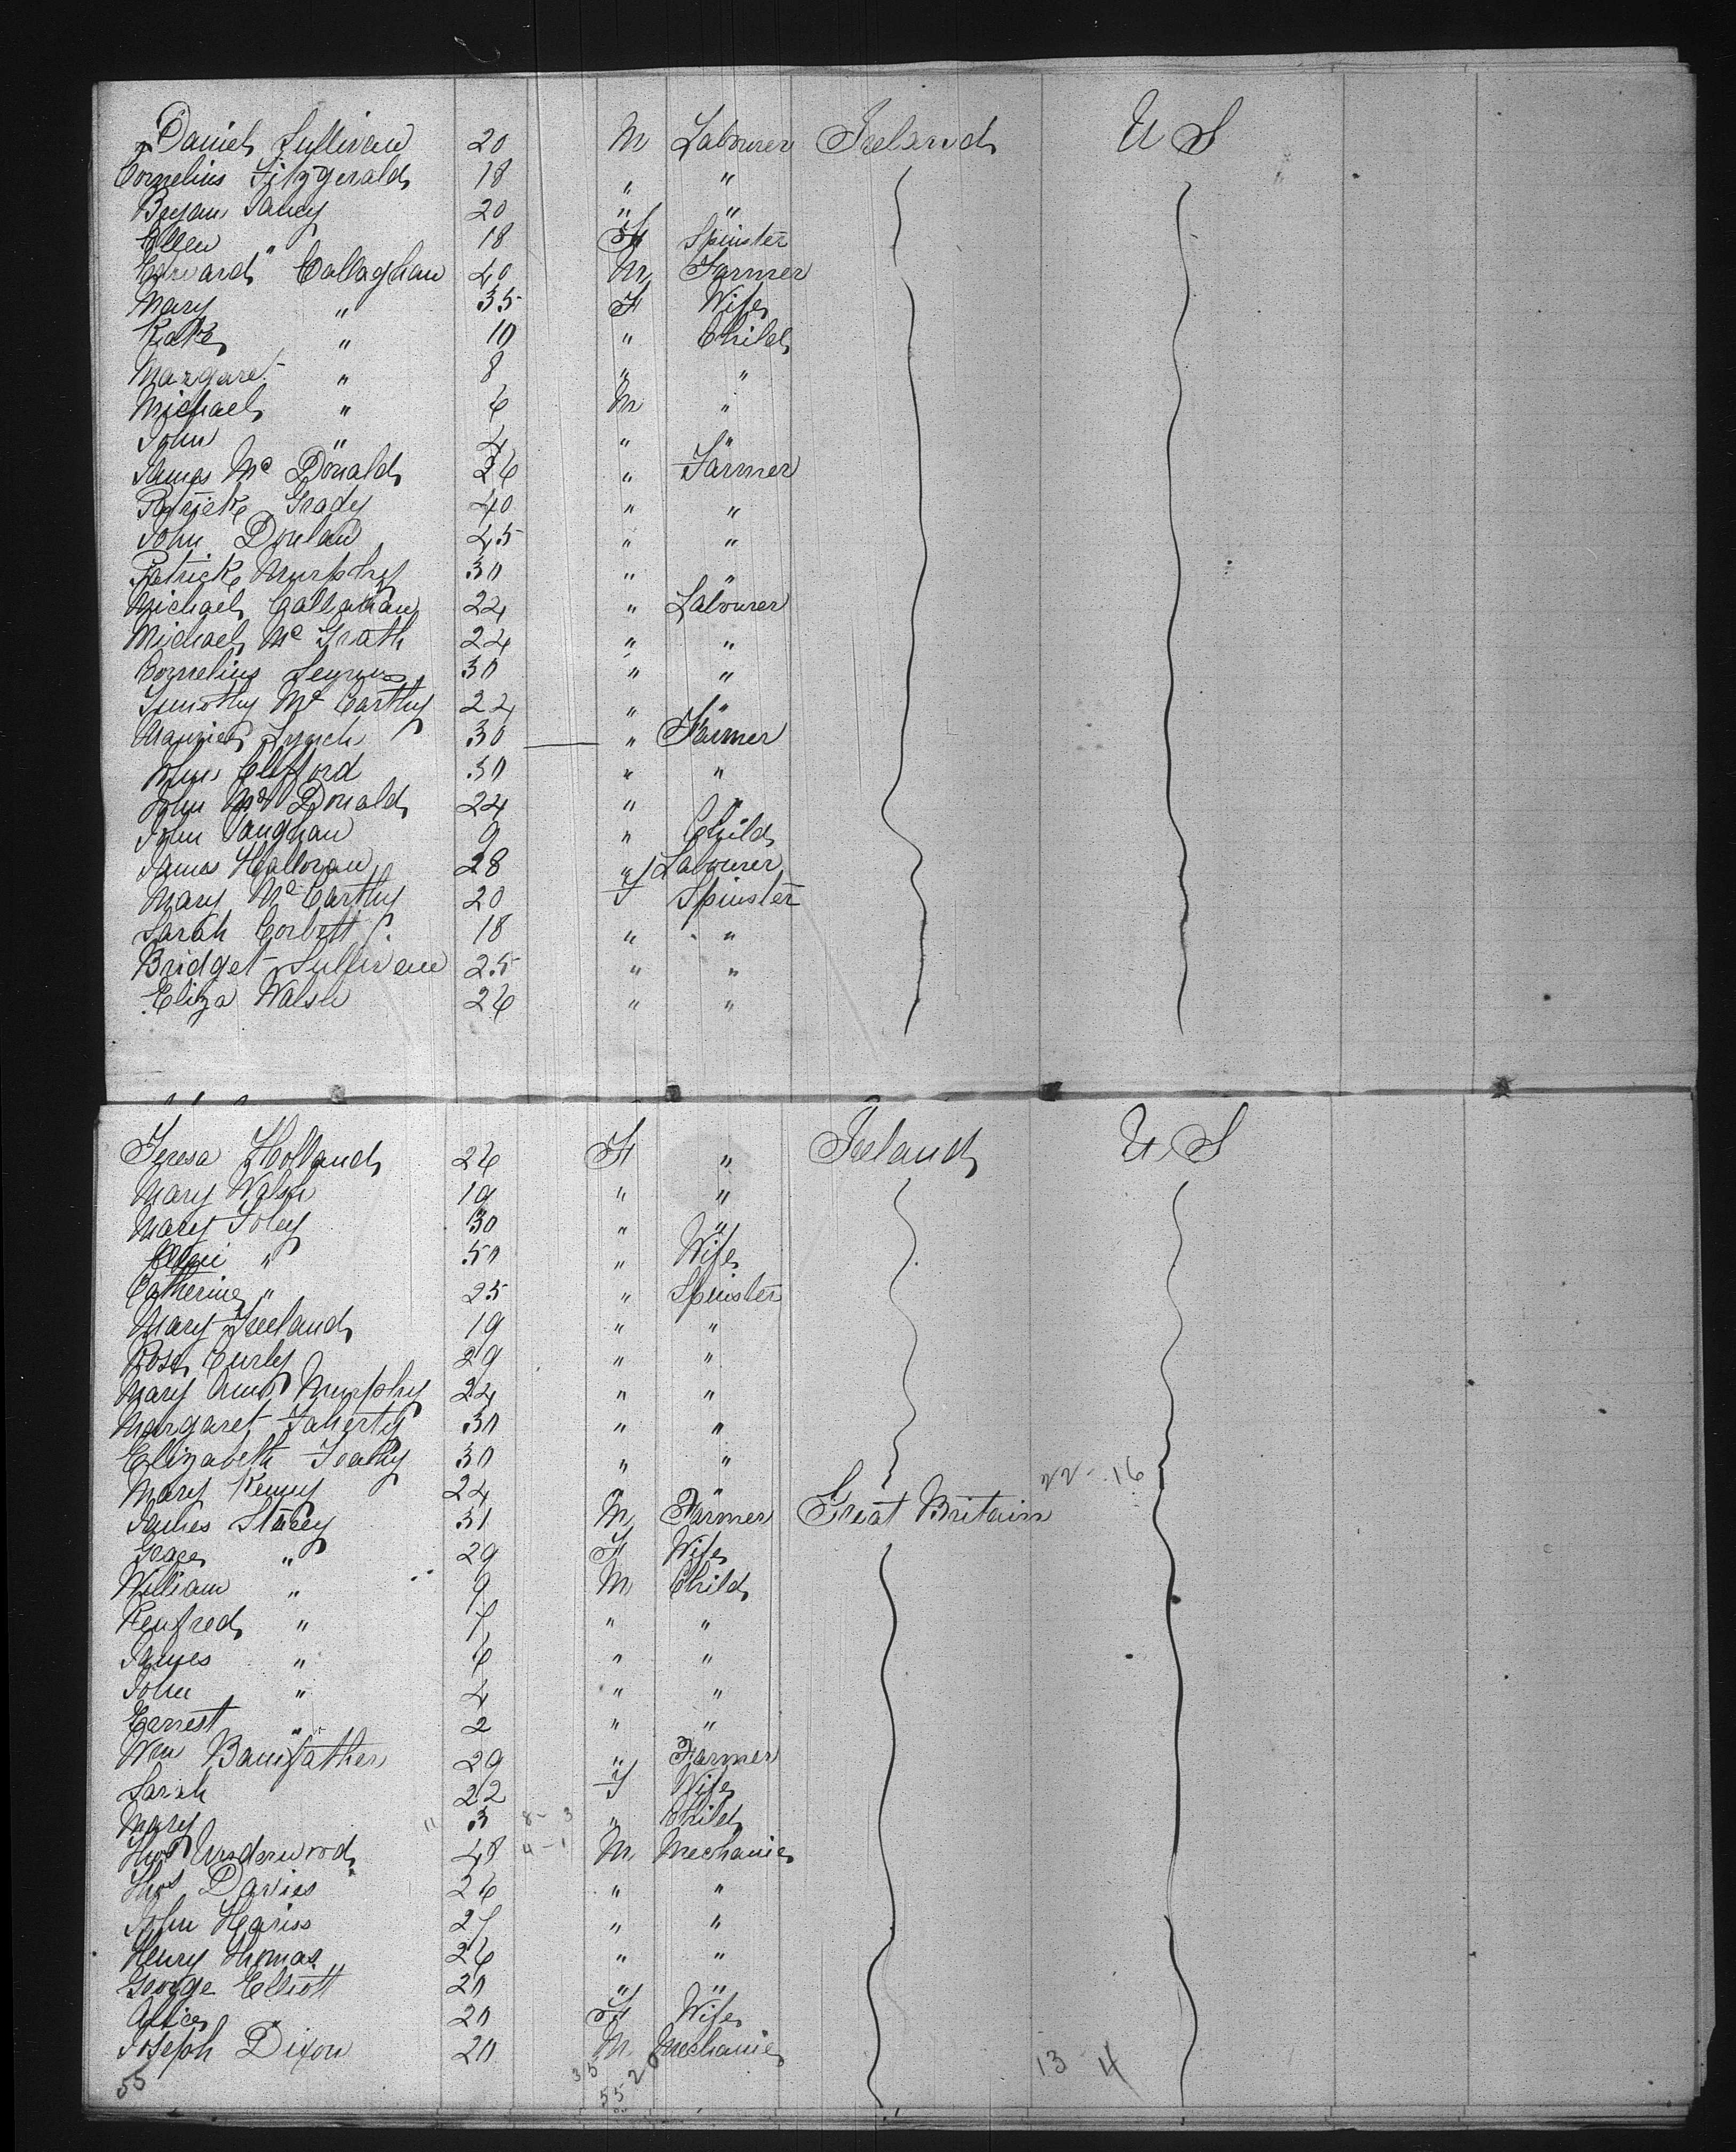 Daniel Sullivan 20 M Labourer Ireland U S
Cornelius Fitzgerald 18 " "
Bryan 20 " "
Ellen " 18 F Spinster
Edward Callaghan 40 M Farmer
Mary " 35 F Wife
Kate " 10 " Child
Margaret " 8 " "
Michael " 6 M "
John " 4 " "
James Mc Donald 26 " Farmer
Patrick Grady 40 " "
John Donlan 45 " "
Patrick Murphy 30 " "
Michael Callahan 22 " Labourer
Michael Mc Grath 22 " "
Cornelius 30 " "
Timothy Mc Carthy 22 " "
Maurice Lynch 30 " Farmer
John Clifford 30 " "
John Mc Donald 24 " "
John Vaughan 9 " Child
James Halloran 28 " Labourer
Mary Mc Carthy 20 F Spinster
Sarah Corbett 18 " "
Bridget Sullivan 25 " "
Eliza Walsh 26 " "
Teresa Holland 26 F " Ireland U S
Mary Walsh 19 " "
Mary Foley 30 " "
" 50 " Wife
Catherine " 25 " Spinster
Mary Ireland 19 " "
Rose Curly 29 " "
Mary Ann Murphy 24 " "
Margaret Faherty 30 " "
Elizabeth 30 " "
Mary Kenny 24 " " 22 - 16
James Stacey 31 M Farmer Great Britain
Grace " 29 F Wife
William " 9 M Child
Renfred " 7 " "
James " 6 " "
John " 4 " "
Ernest " 2 " "
Wm Bainfather 29 " Farmer
Sarah 22 F Wife
Mary " 3 8 - 3 " Child
Thos Underwood 48 4 - 1 M Mechanic
Thos Davies 26 " "
John Hariss 27 " "
Henry Thomas 26 " "
George Elliott 20 " "
Alice " 20 F Wife
Joseph Dixon 20 M Mechanic
55 35 20 13 4
55